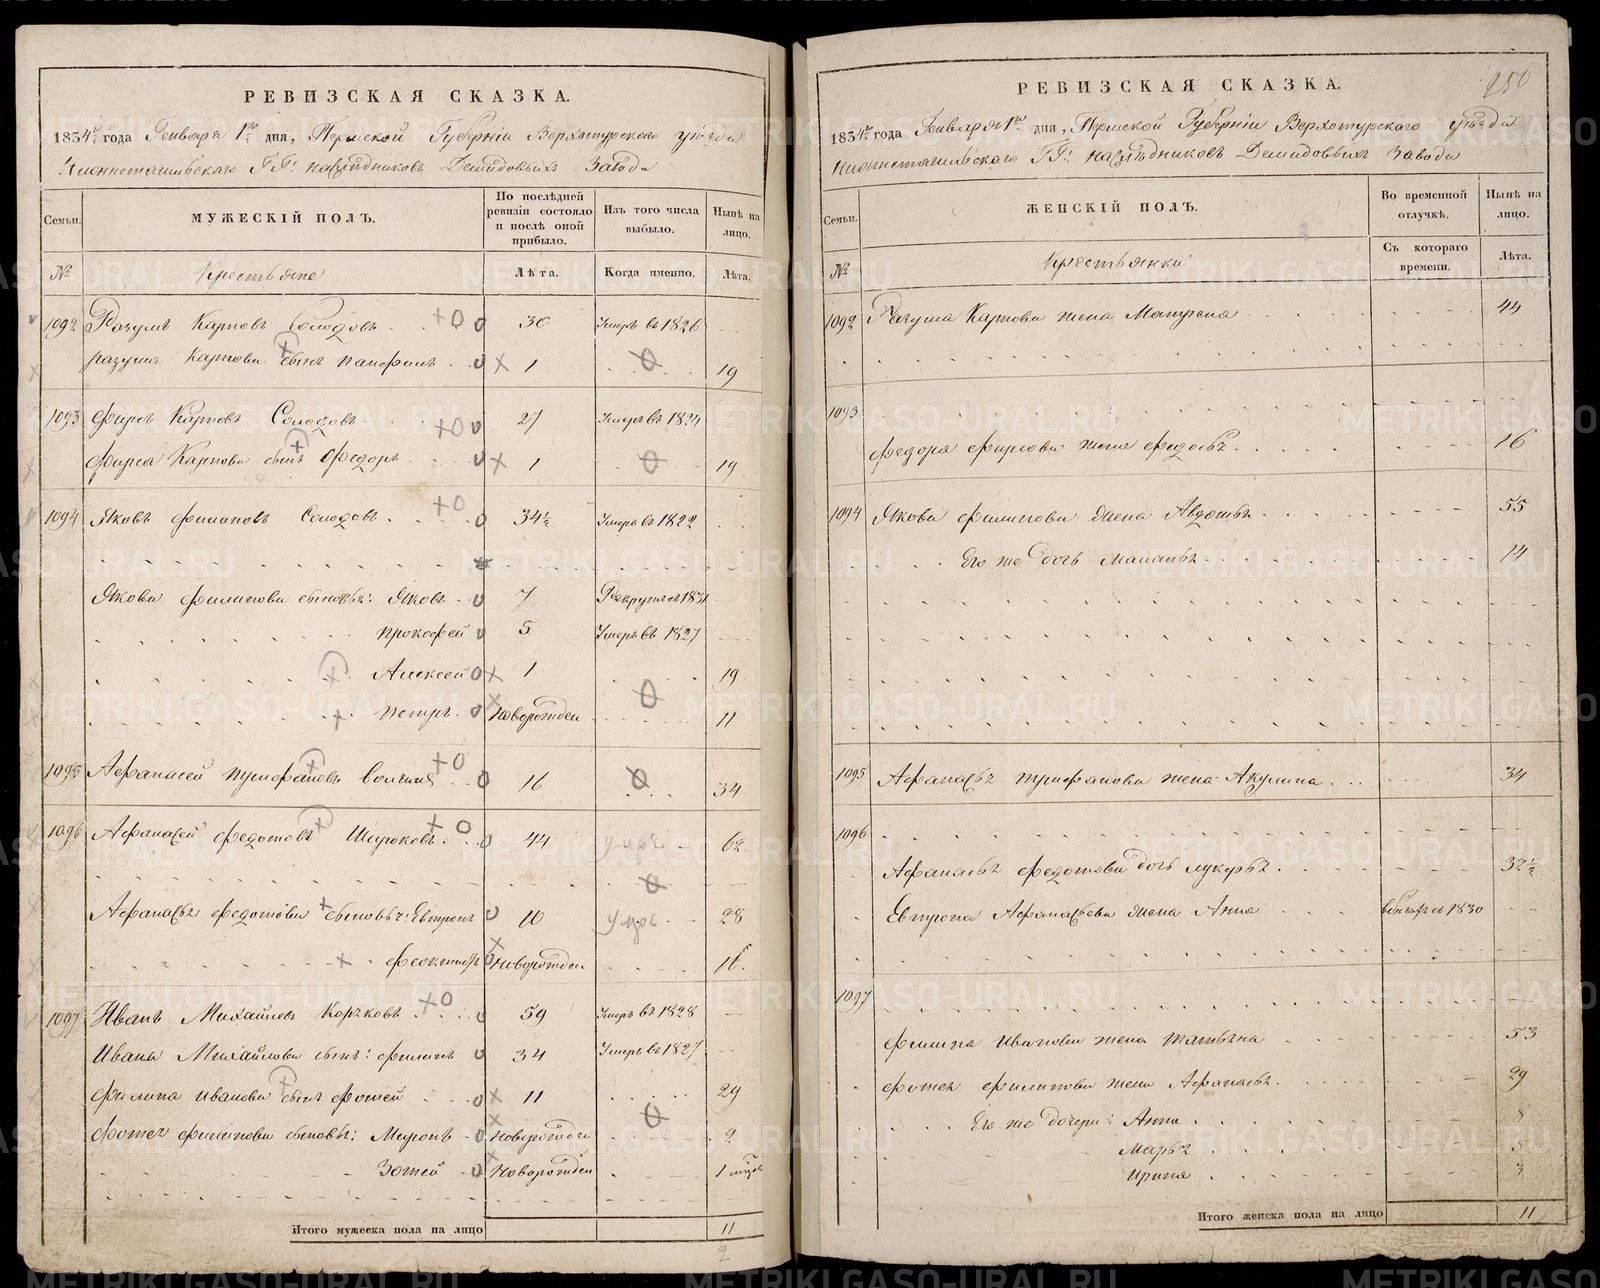 РЕВИЗСКАЯ СКАЗКА.
1834го года Генваря 1го дня, Пермской Губерніи Верхотурскаго уѣзда
Нижнетагильскаго ГГ: наслѣдниковъ Демидовыхъ Завода
Семьи. МУЖЕСКІЙ ПОЛЪ. По послѣдней ревизіи состояло и послѣ оной прибыло. Изъ того числа выбыло. Нынѣ на лицо.
№ Крестьяне Лѣта. Когда именно. Лѣта.
1092 Разумъ Карповъ Солодовъ 30 Умеръ въ 1826
Разума Карпова сынъ Панфилъ 1 19
1093 Фирсъ Карповъ Солодовъ 27 Умеръ въ 1824
Фирса Карпова сынъ Федоръ 1 19
1094 Яковъ Филиповъ Солодовъ 34½ Умеръ въ 1822
Якова Филипова сыновья: Яковъ 7 Рекрутъ съ 1831
Прокофей 5 Умеръ въ 1827
Алексей 1 19
Петръ Новорожден 11
1095 Афанасей Трифановъ 16 34
1096 Афанасей Федотовъ Широковъ 44 умре 62
Афанасья Федотова сыновья: Евтропъ 10 умре 28
Феоктистъ Новорожден 16
1097 Иванъ Михайловъ Коръковъ 59 Умеръ въ 1828
Ивана Михайлова сынъ: Филипъ 34 Умеръ въ 1827
Филипа Иванова сынъ Фотей 11 29
Фотея Филипова сыновья: Миронъ Новорожден 9
Зотей Новорожден 1 мѣся
Итого мужеска пола на лицо 11
2
250
РЕВИЗСКАЯ СКАЗКА.
1834го года Генваря 1го дня, Пермской Губерніи Верхотурскаго уѣзда
Нижнетагильскаго ГГ: наслѣдниковъ Демидовыхъ Завода
Семьи. ЖЕНСКІЙ ПОЛЪ. Во временной отлучкѣ. Нынѣ на лицо.
№ Крестьянки Съ котораго времени. Лѣта.
1092 Разума Карпова жена Матрена 44
1093
Федора Фирсова жена Федосья 16
1094 Якова Филипова жена Авдотья 55
Его же дочь Маланья 14
1095 Афанасья Трифанова жена Акулина 34
1096
Афанасья Федотова дочь Лукерья 32½
Евтропа Афанасьева жена Анна въ бегахъ съ 1830
1097
Филипа Иванова жена Татьяна 53
Фотея Филипова жена Афанасья 29
Его же дочери: Анна 8
Марья 5
Ирина 3
Итого женска пола на лицо 11
METRIKI.GASO-URAL.RU